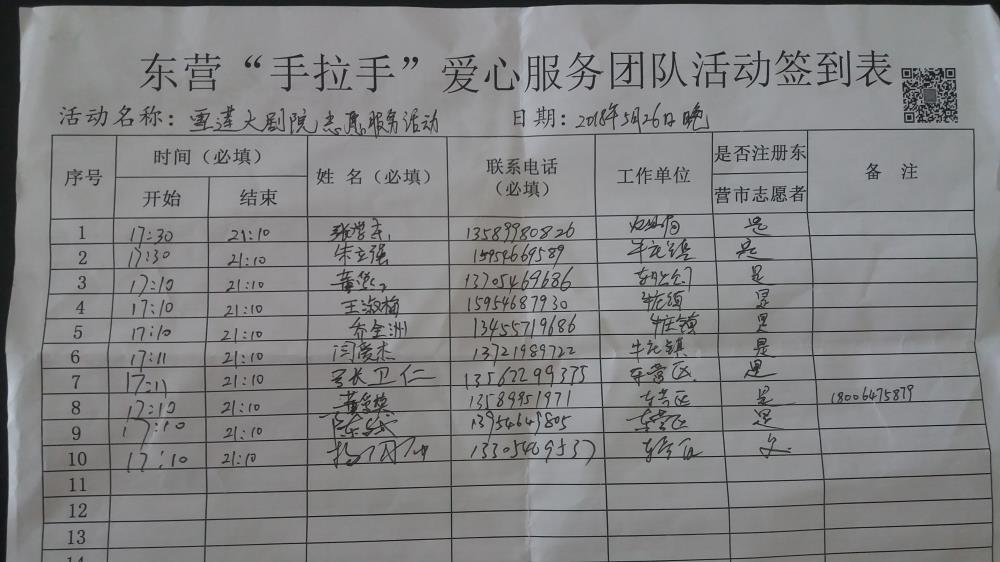 东营“手拉手”爱心服务团队活动签到表
活动名称：雪莲大剧院志愿服务活动 日期：2018年5月26日晚
序号 时间（必填） 姓 名（必填） 联系电话（必填） 工作单位 是否注册东营市志愿者 备 注
开始 结束
1 17:30 21:10 13589980826 是
2 17:30 21:10 朱立强 15954669589 牛庄镇 是
3 17:10 21:10 13705469686 是
4 17:10 21:10 王淑梅 15954687930 牛庄镇 是
5 17:10 21:10 乔金洲 13455719686 牛庄镇 是
6 17:11 21:10 闫爱杰 13721989722 牛庄镇 是
7 17:11 21:10 张卫仁 13562299375 东营区 是
8 17:10 21:10 13589951971 东营区 是 18006475879
9 17:10 21:10 13954649805 东营区 是
10 17:10 21:10 13305469537 东营区
11
12
13